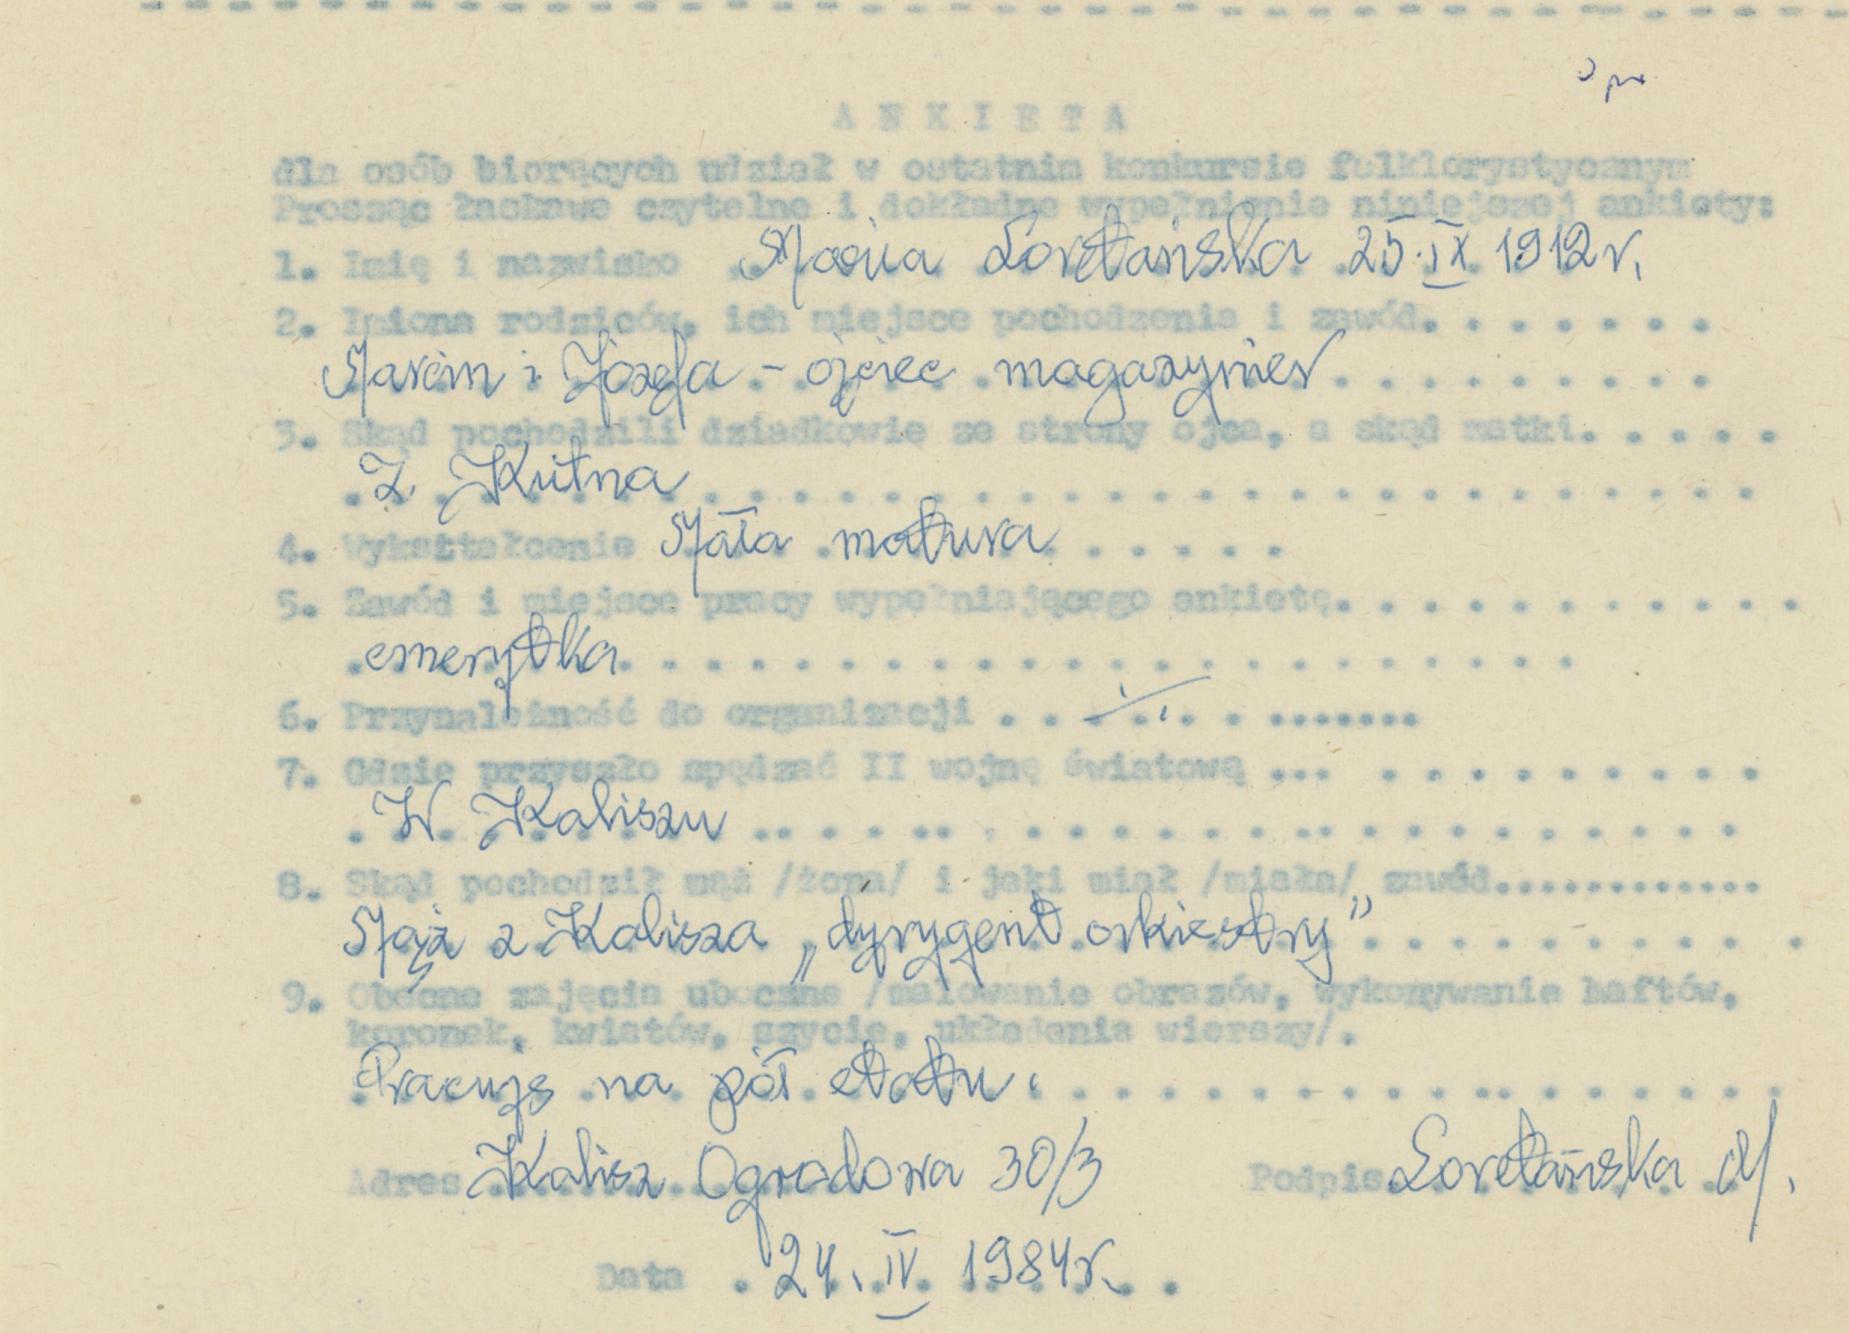 ANKIETA
dla osób biorących udział w ostatnim konkursie folklorystycznym
Prosząc łaskawe czytelne i dokładne wypełnienie niniejszej ankiety:
1. Imię i nazwisko Maria Loretańska 25.IX 1912 r.
2. Imiona rodziców, ich miejsce pochodzenia i zawód. . . . . . .
Marcin i Józefa - ojciec magazynier . . . . . . . . .
3. Skąd pochodzili dziadkowie ze strony ojca, a skąd matki. . . . .
Z Kutna
4. Wykształcenie Mała matura . . . . .
5. Zawód i miejsce pracy wypełniającego ankietę. . . . . . . . . . .
emerytka
6. Przynależność do organizacji . . . . . . . .......
7. Gdzie przyszło spędzać II wojnę światową ... . . . . . . . . .
W Kaliszu
8. Skąd pochodził mąż /żona/ i jaki miał /miała/ zawód............
Mąż z Kalisza „dyrygent orkiestry”
9. Obecne zajęcia uboczne /malowanie obrazów, wykonywanie haftów,
koronek, kwiatów, szycie, układania wierszy/.
Pracuję na pół etatu.
Adres Kalisz Ogrodowa 30/3 Podpis Loretańska M.
Data 24. IV 1984 r.